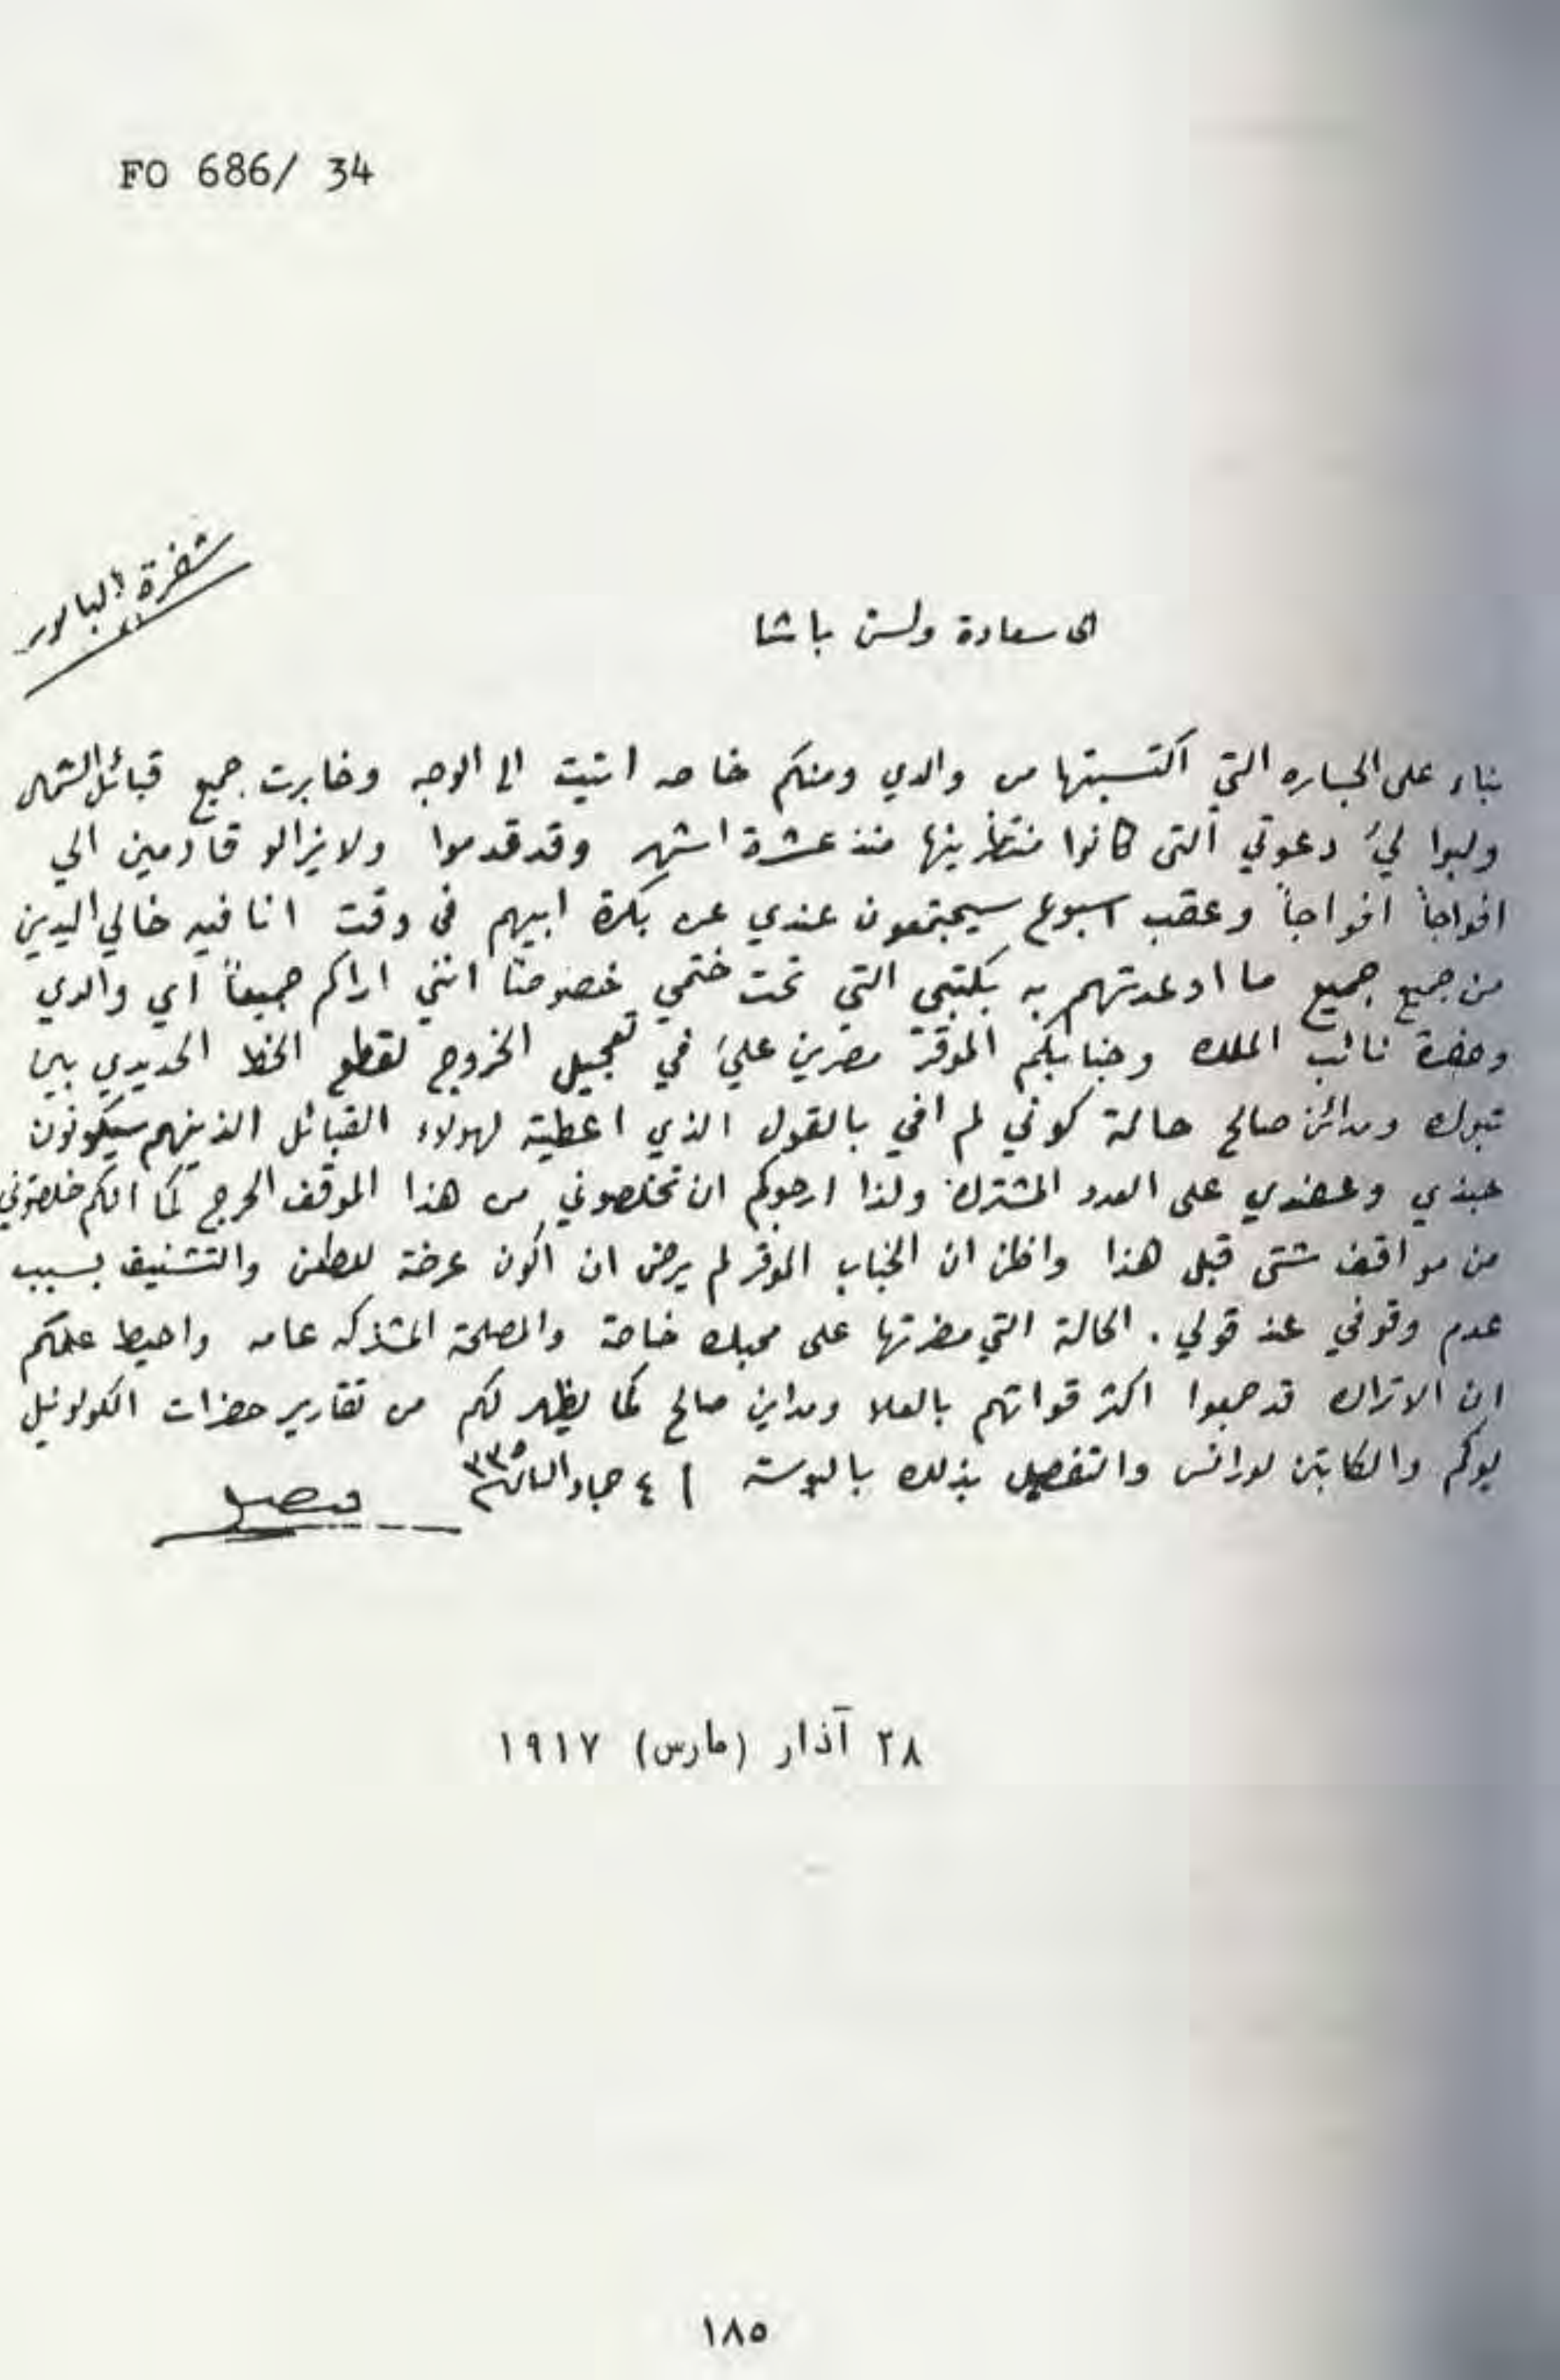 FO 686/ 34
شفرة
الى سعادة ولسن باشا
بناء على الجساره التي اكتسبتها من والدي ومنكم خاصه اتيت الى الوجه وخابرت جميع قبائل الشمال
ولبوا ليَ دعوتي التى كانوا منتظرينها منذ عشرة اشهر وقد قدموا ولا يزالو قادمين الي
افواجاً افواجاً وعقب اسبوع سيجتمعون عندي عن بكرة ابيهم فى وقت انا فيه خالي اليدين
من جميع جميع ما اوعدتهم به بكتبى التي تحت ختمي خصوصاً انني اراكم جميعاً اي والدي
وحضرة نائب الملك وجنابكم الموقر مصرين عليَ في تعجيل الخروج لقطع الخط الحديدي بين
تبوك ومدائن صالح حالة كوني لم افي بالقول الذي اعطيته لهولاء القبائل الذينهم سيكونون
جندي وعضدي على العدد المشترك ولذا ارجوكم ان تخلصوني من هذا الموقف الحرج كما انكم خلصتوني
من مواقف شتى قبل هذا واظن ان الجناب الموقر لم يرض ان اكون عرضة للطعن والتشنيف بسبب
عدم وقوفي عند قولي . الحالة التي مضرتها على محبك خاصة والمصلحة المشتركه عامه واحيط علمكم
ان الاتراك قد جمعوا اكثر قواتهم بالعلا ومداين صالح كما يظهر لكم من تقارير حضرات الكولونيل
يوكم والكابتن لورانس والتفصيل بذلك بالبوسته ٤ جماد الثاني ٣٣٥
فيصل
٢٨ آذار (مارس) ١٩١٧
١٨٥